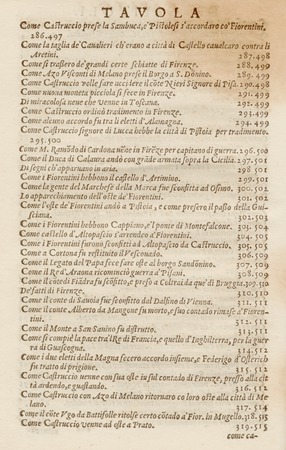 TAVOLA
Come Castruccio prese la Sambuca, e' Pistolesi s'accordaro co' Fiorentini,
286.497
Come la taglia de' Cavalieri ch'erano a città di Castello cavalcaro contra li
Aretini. 287.498
Come si trassero de' grandi certe schiatte di Firenze. 288.499
Come Azo Visconti di Melano prese il Borgo a S. Donino. 289.499
Come Castruccio volle fare uccidere il Cōte Nieri Signore di Pisa. 290.498
Come nuova moneta picciola si fece in Firenze. 291.499
Di miracolosa neve che venne in Toscana. 292.499
Come Castruccio ordicò tradimento in Firenze. 293.499
Come alcuno accordo si fra li eletti d'Alamagna. 294.499
Come Castruccio signore di Lucca hebbe la città di Pistoia per tradimento.
295.500
Come M. Ramōdo di Cardona vēne in Firēze per capitano di guerra. 296.500
Come il Duca di Calavra andò con grāde armata sopra la Cicilia. 297.501
Di segni ch'apparuono in aria. 298.501
Come i Fiorentini hebbono il castello d'Artimino. 299.501
Come la gente del Marchese della Marca fue sconfitta ad Osimo. 300.501
Lo apparecchiamento dell'oste de' Fiorentini. 301.502
Come l'oste de' Fiorentini andò a Pistoia, e come presero il passo della Gusciana.
302.503
Come i Fiorentini hebbono Cappiano, e'l ponte di Montefalcone. 303.504
Come castello d'Altopascio s'arrendeo a Fiorentini. 304.505
Come i Fiorentini furono sconfitti ad Altopascio da Castruccio. 305.505
Come a Cortona fu restituito il Vescovado. 306.509
Come il Legato del Papa fece fare oste al borgo Sandōnino. 307.509
Come il Re d'Araona ricominciò guerra a' Pisani. 308.509
Come il cōte di Fiādra fu scōfitto, e preso a Coltrai da que' di Bruggia. 309.510
De' fatti di Firenze. 310.505
Come il conte di Savoia fue sconfitto dal Dalfino di Vienna. 311.511
Come il conte Alberto da Mangone fu morto, e suo contado rimase a' Fiorentini.
312.511
Come il Monte a San Sanino fu distrutto. 313.511
Come fu compiè la pace tra'l Re di Francia, e quello d'Inghilterra, per la guerra
di Guascogna. 314.512
Come i due eletti della Magna fecero accordo insieme, e Federigo d'Osterich
fu tratto di prigione. 315.512
Come Castruccio venne con sua oste in sul contado di Firenze, presso alla città
ardendo, e guastando. 316.513
Come Castruccio con Azo di Melano ritornaro co loro oste alla città di Melano.
317.514
Come il cōte Vgo da Battifolle ritolse certo cōtado a' Fior. in Mugello. 318.515
Come Castruccio venne ad oste a Prato. 319.515
come ca-